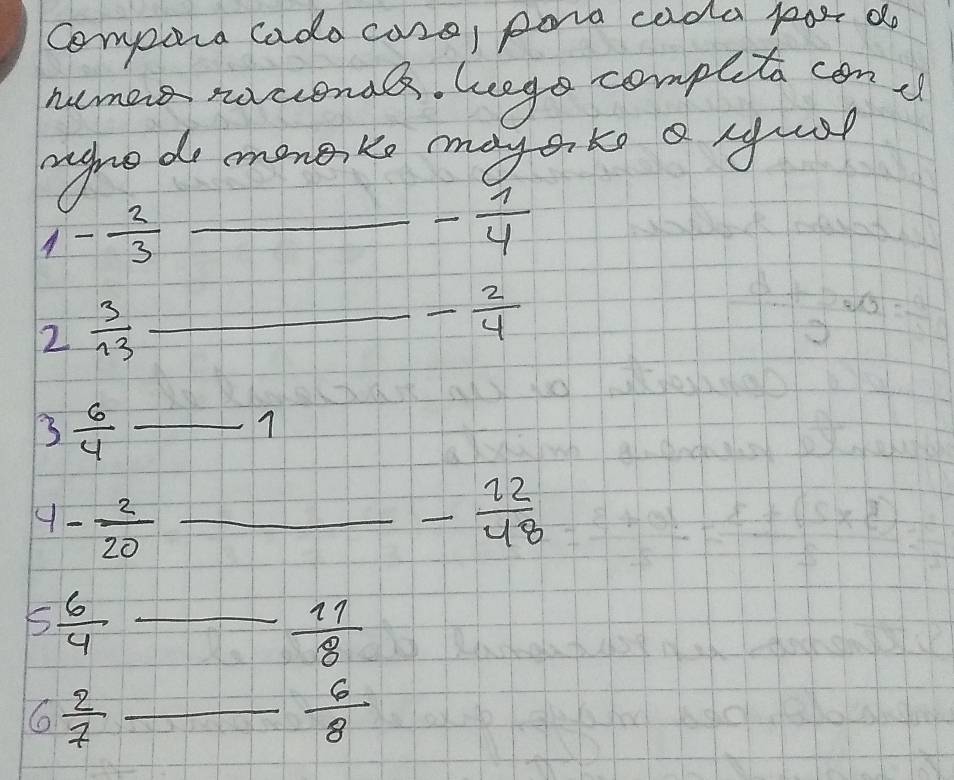 Compara cada caso, para cada par de
numero racionals. luego completa con el
signo de menor ke mayor ke o igual
1 - 2/3 ______ - 1/4
2 3/13 ______ - 2/4
3 6/4 ____ 1
4 - 2/20 ______ - 12/48
5 6/4 ____ 11/8
6 2/7 ____ 6/8